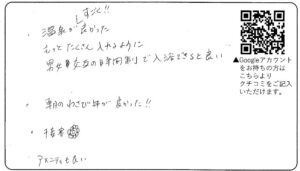 すごく!!
・温泉が良かった
もっとたくさん入れるように
男女交互の時間制で入浴できると良い
・朝のわさび丼が良かった!!
・接客
アメニティも良い
▲Googleアカウント
をお持ちの方は
こちらより
クチコミをご記入
いただけます。